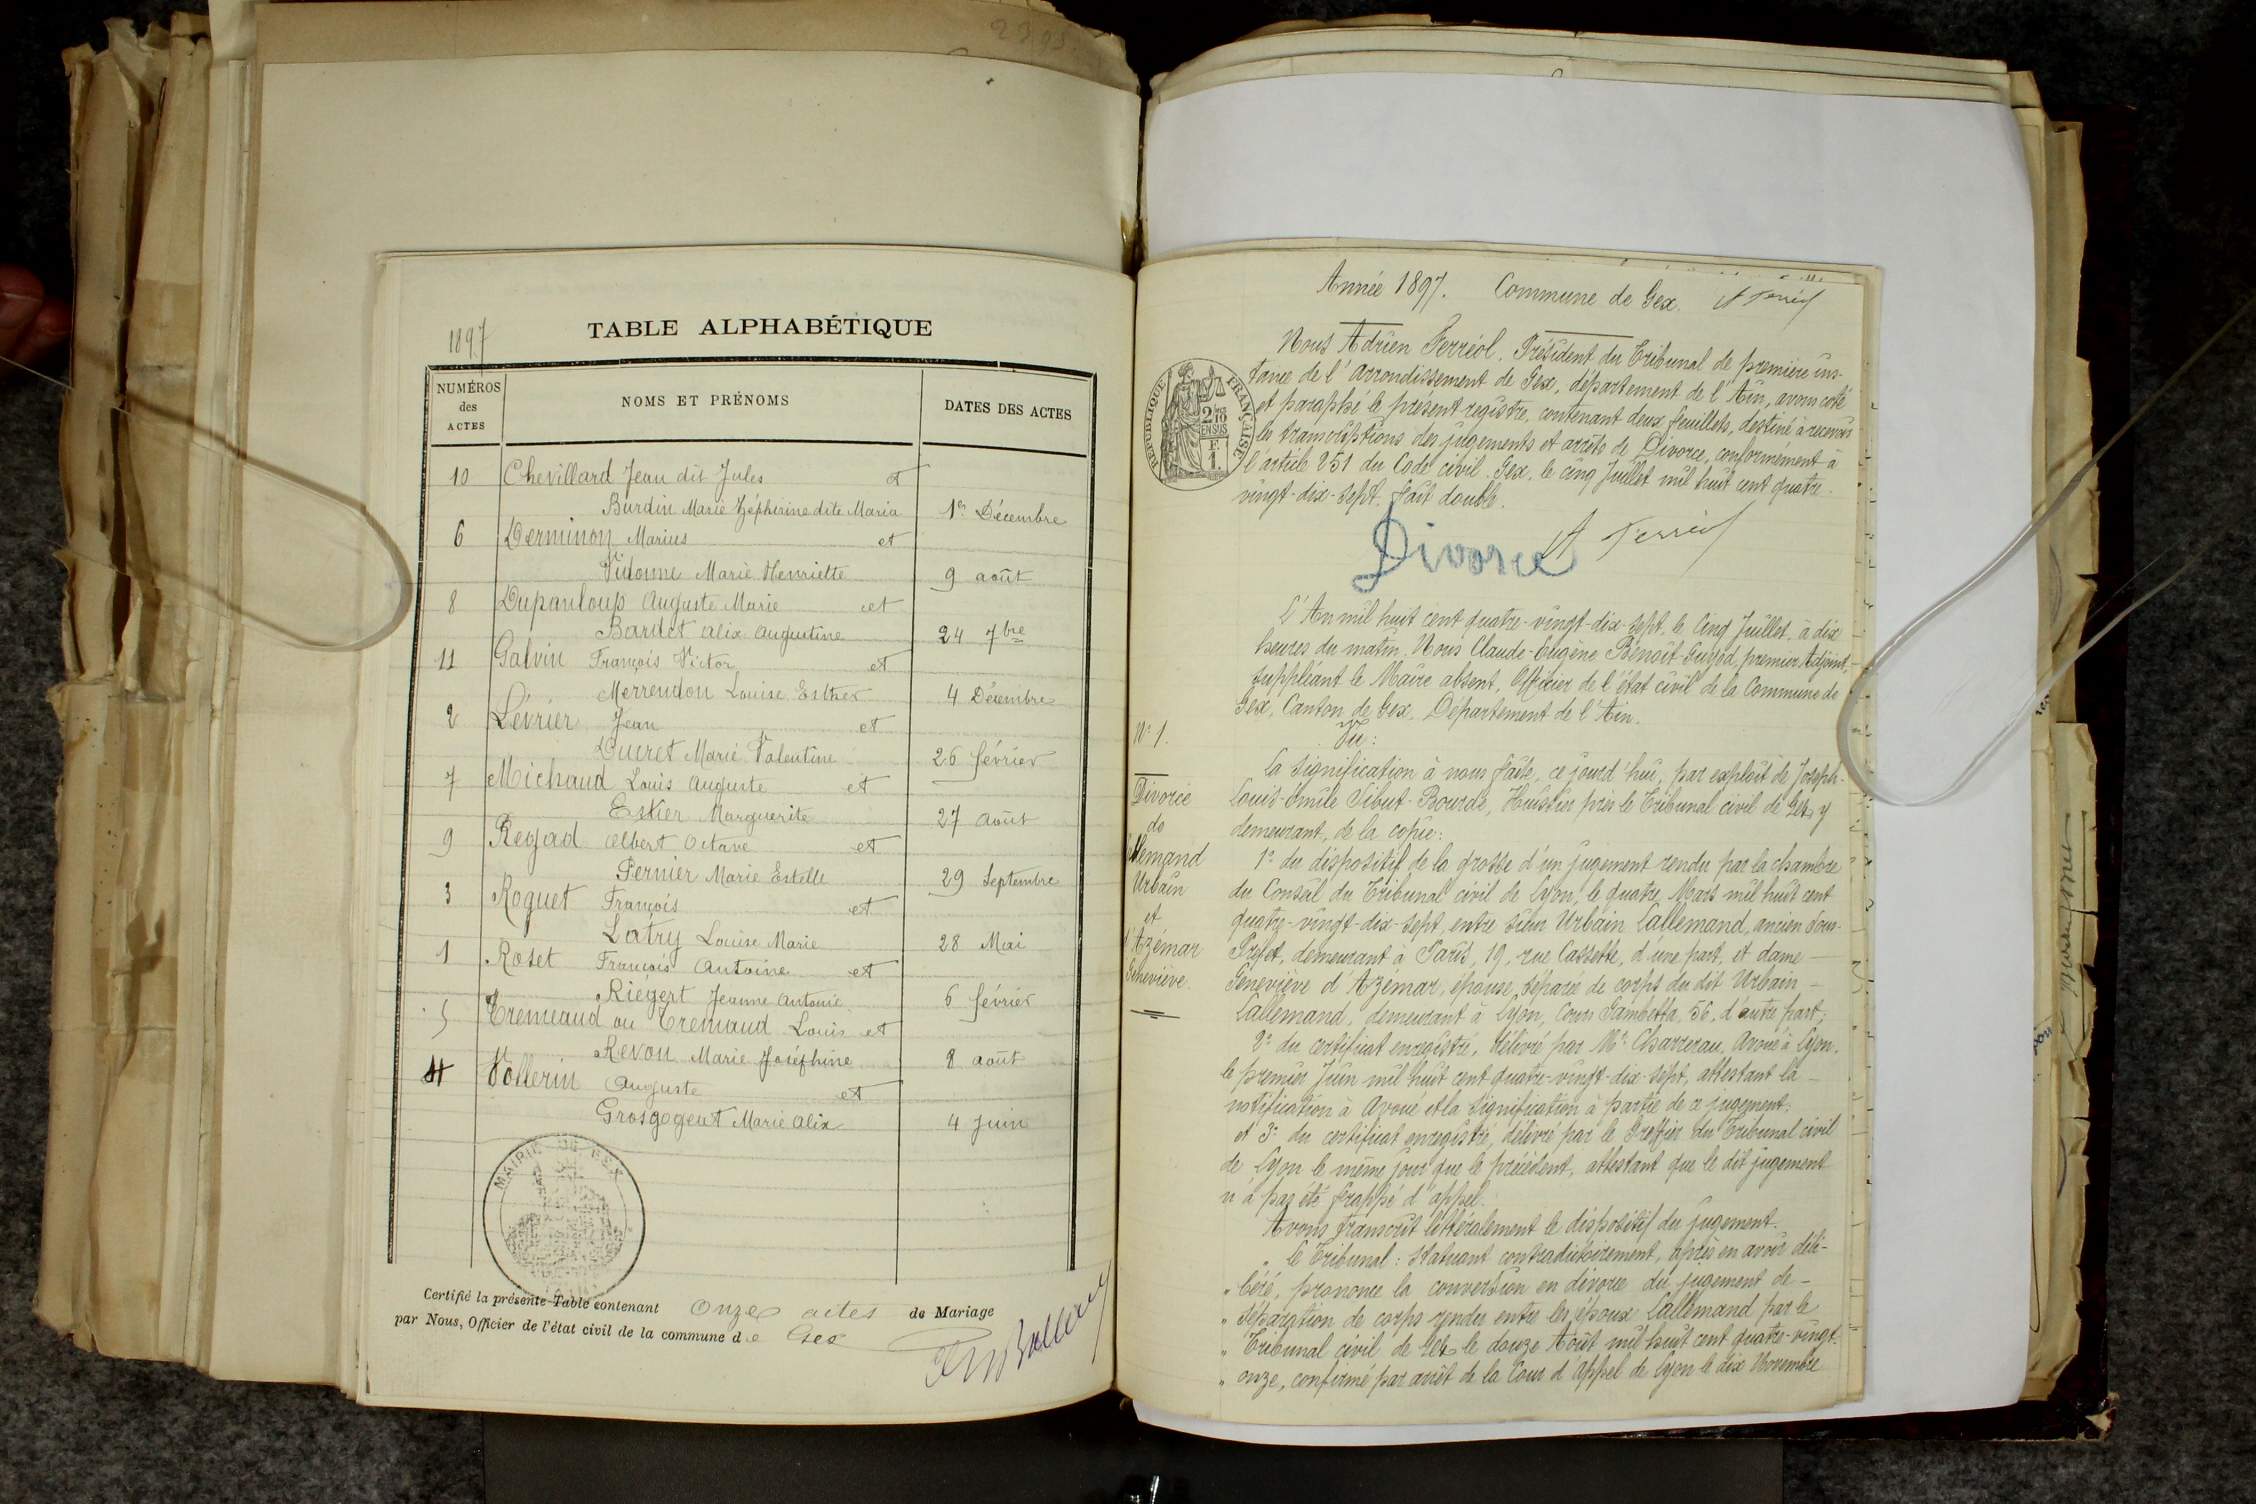 1897
TABLE ALPHABÉTIQUE
NUMÉROS des ACTES
NOMS ET PRÉNOMS
DATES DES ACTES
10 Chevillard Jean dit Jules et
Burdin Marie Zéphirine dite Maria 1er Décembre
6 Derminon Marius et
Vidonne Marie Henriette 9 août
8 Dupanloup Auguste Marie et
Bardet Alix Augustine 24 7bre
11 Galvin François Victor et
Merrendon Louise Esther 4 Décembre
2 Lévrier Jean et
Ducret Marie Valentine 26 février
7 Michaud Louis Auguste et
Eskier Marguerite 27 août
9 Regad Albert Octave et
Pernier Marie Estelle 29 Septembre
3 Roguet François et
Latry Louise Marie 28 Mai
1 Roset François Antoine et
Riegert Jeanne Antonie 6 février
5 Tremeaud ou Tremaud Louis et
Revon Marie Joséphine 8 août
4 Vollerin Auguste et
Grosgogeat Marie Alix 4 juin
MAIRIE DE GEX
Certifié la présente Table contenant Onze actes de Mariage
par Nous, Officier de l'état civil de la commune de Gex
Année 1897. Commune de Gex. A Ferréol
Nous Adrien Ferréol, Président du Tribunal de première ins-
tance de l'arrondissement de Gex, département de l'Ain, avons coté
et paraphé le présent registre, contenant deux feuillets, destiné à recevoir
les transcriptions des jugements et arrêts de Divorce, conformément à
l'article 251 du Code civil. Gex, le cinq Juillet mil huit cent quatre-
vingt-dix-sept. Fait double.
RÉPUBLIQUE FRANÇAISE
2/10 EN SUS
F. 1.
A Ferréol
Divorce
L'An mil huit cent quatre-vingt-dix-sept, le cinq Juillet, à dix
heures du matin, Nous Claude-Eugène Benoît-Guyod, premier Adjoint,
suppléant le Maire absent, Officier de l'état civil de la Commune de
Gex, Canton de Gex, Département de l'Ain.
Vu:
N° 1.
Divorce
de
Lallemand
Urbain
et
d'Azémar
Geneviève.
La signification à nous faite, ce jourd'hui, par exploit de Joseph-
Louis-Emile Sibut-Bourde, Huissier près le Tribunal civil de Gex y
demeurant, de la copie:
1° du dispositif de la grosse d'un jugement rendu par la chambre
du Conseil du Tribunal civil de Lyon, le quatre Mars mil huit cent
quatre-vingt-dix-sept, entre sieur Urbain Lallemand, ancien Sous-
Préfet, demeurant à Paris, 19, rue Cassette, d'une part, et dame -
Geneviève d'Azémar, épouse séparée de corps du dit Urbain -
Lallemand, demeurant à Lyon, Cours Gambetta, 56, d'autre part;
2° du certificat enregistré, délivré par Me Charrerau, Avoué à Lyon,
le premier Juin mil huit cent quatre-vingt-dix-sept, attestant la -
notification à Avoué et la signification à partie de ce jugement;
et 3° du certificat enregistré, délivré par le Greffier du Tribunal civil
de Lyon le même jour que le précédent, attestant que le dit jugement
n'a pas été frappé d'appel.
Avons transcrit littéralement le dispositif du jugement.
" Le Tribunal: Statuant contradictoirement, après en avoir déli-
" béré, prononce la conversion en divorce du jugement de -
" séparation de corps rendu entre les époux Lallemand par le
" Tribunal civil de Gex le douze Août mil huit cent quatre-vingt-
" onze, confirmé par arrêt de la Cour d'Appel de Lyon le dix Novembre